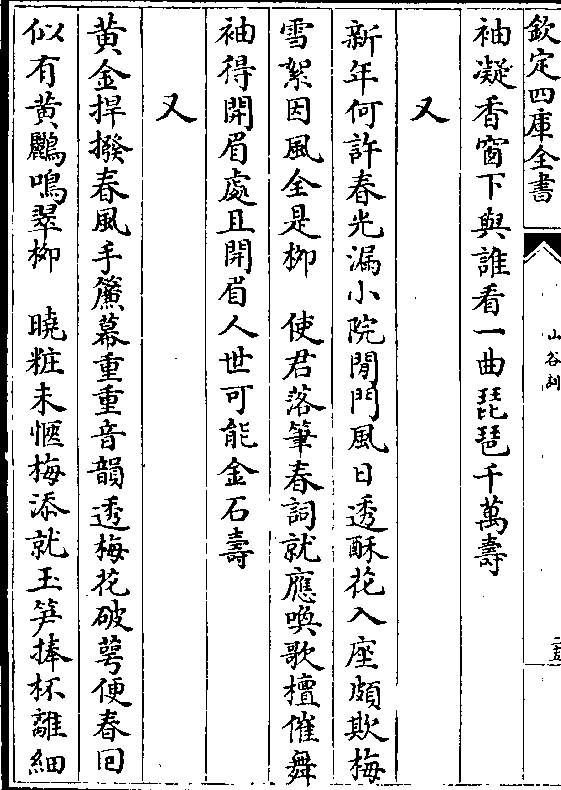 欽定四庫全書
山谷詞
二五
袖凝香窗下與誰看一曲琵琶千萬壽
又
新年何許春光漏小院閒門風日透酥花入座頗欺梅
雪絮因風全是栁　使君落筆春詞就應喚歌檀催舞
袖得開眉處且開眉人世可能金石壽
又
黄金捍撥春風手簾幕重重音韻透梅花破萼便春回
似有黄鸝鳴翠栁　曉粧未愜梅添就玉笋捧杯離細